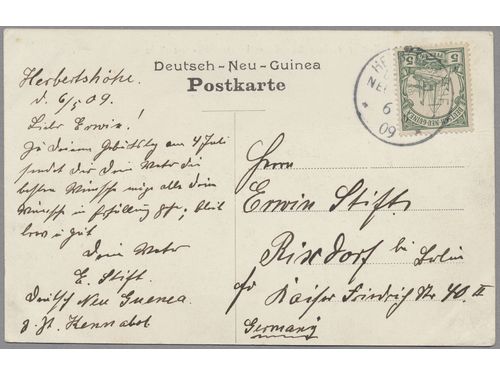 Deutsch-Neu-Guinea
Postkarte
Herbertshöhe
d. 6/5 09.
Lieber Erwin!
Zu Deinem Geburtstag am 4 Juli
sendet Dir Dein Vater die
besten Wünsche möge alle Dein
Wünsche in Erfüllung
brav u gut
Dein Vater
E. Stift.
Deutsch Neu Guenea
z. Zt.
Herrn
Erwin Stift
Rixdorf bei Berlin
Kaiser Friedrich Str. 40 II
Germany
HE
NE
6
09
5 5